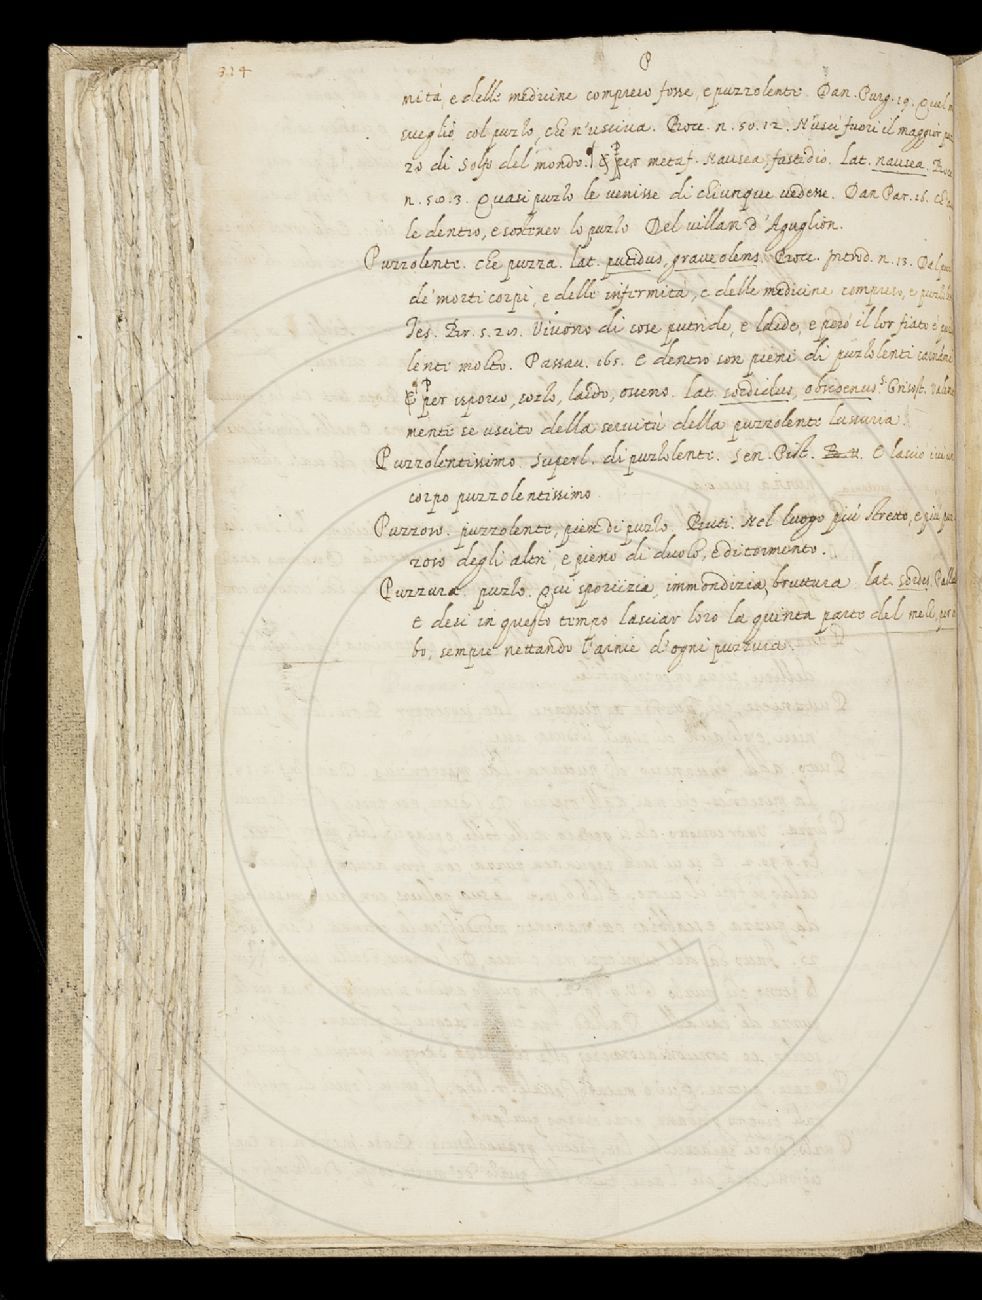 314
P
mità, e delle medicine compreso fosse, e puzzolente. Dan. Purg. 19. Quel m
svegliò col puzzo, che n'usciva. Bocc. n. 50. 12. N'uscì fuori il maggior puz
zo di Solfo del mondo. § Per metaf. Nausea, fastidio. Lat. nausea. Bocc.
n. 50. 3. Quasi puzzo le venisse di chiunque vedesse. Dan Par. 16. Che
le dentro, e sostener lo puzzo Del villan d'Aguglion.
Puzzolente. che puzza. lat. putidus, graveolens. Bocc. Introd. n. 13. Dal puz
de' morti corpi, e delle infermità, e delle medicine compreso, e puzzolen
Tes. Br. 5. Vivono di cose putride, e laide, e però il lor fiato è puz
lente molto. Passav. 165. E dentro son pieni di puzzolenti
§ Per isporco, sozzo, laido, osceno. lat. sordidus, obscoenus. Grisost.
mente se uscito della servitù della puzzolente Lussuria.
Puzzolentissimo. Superl. di puzzolente. Sen. Pist. E lascio
corpo puzzolentissimo.
Puzzoso. puzzolente, pien di puzzo. Nel luogo più stretto, e più puz
zoso degli altri, e pieno di duolo, e di tormento.
Puzzura. puzzo. Qui sporcizia, immondizia, bruttura. lat. sordes. Palla
E desi in questo tempo lasciar loro la quinta parte del mele, per
bo, sempre nettando l'arnie d'ogni puzzura.